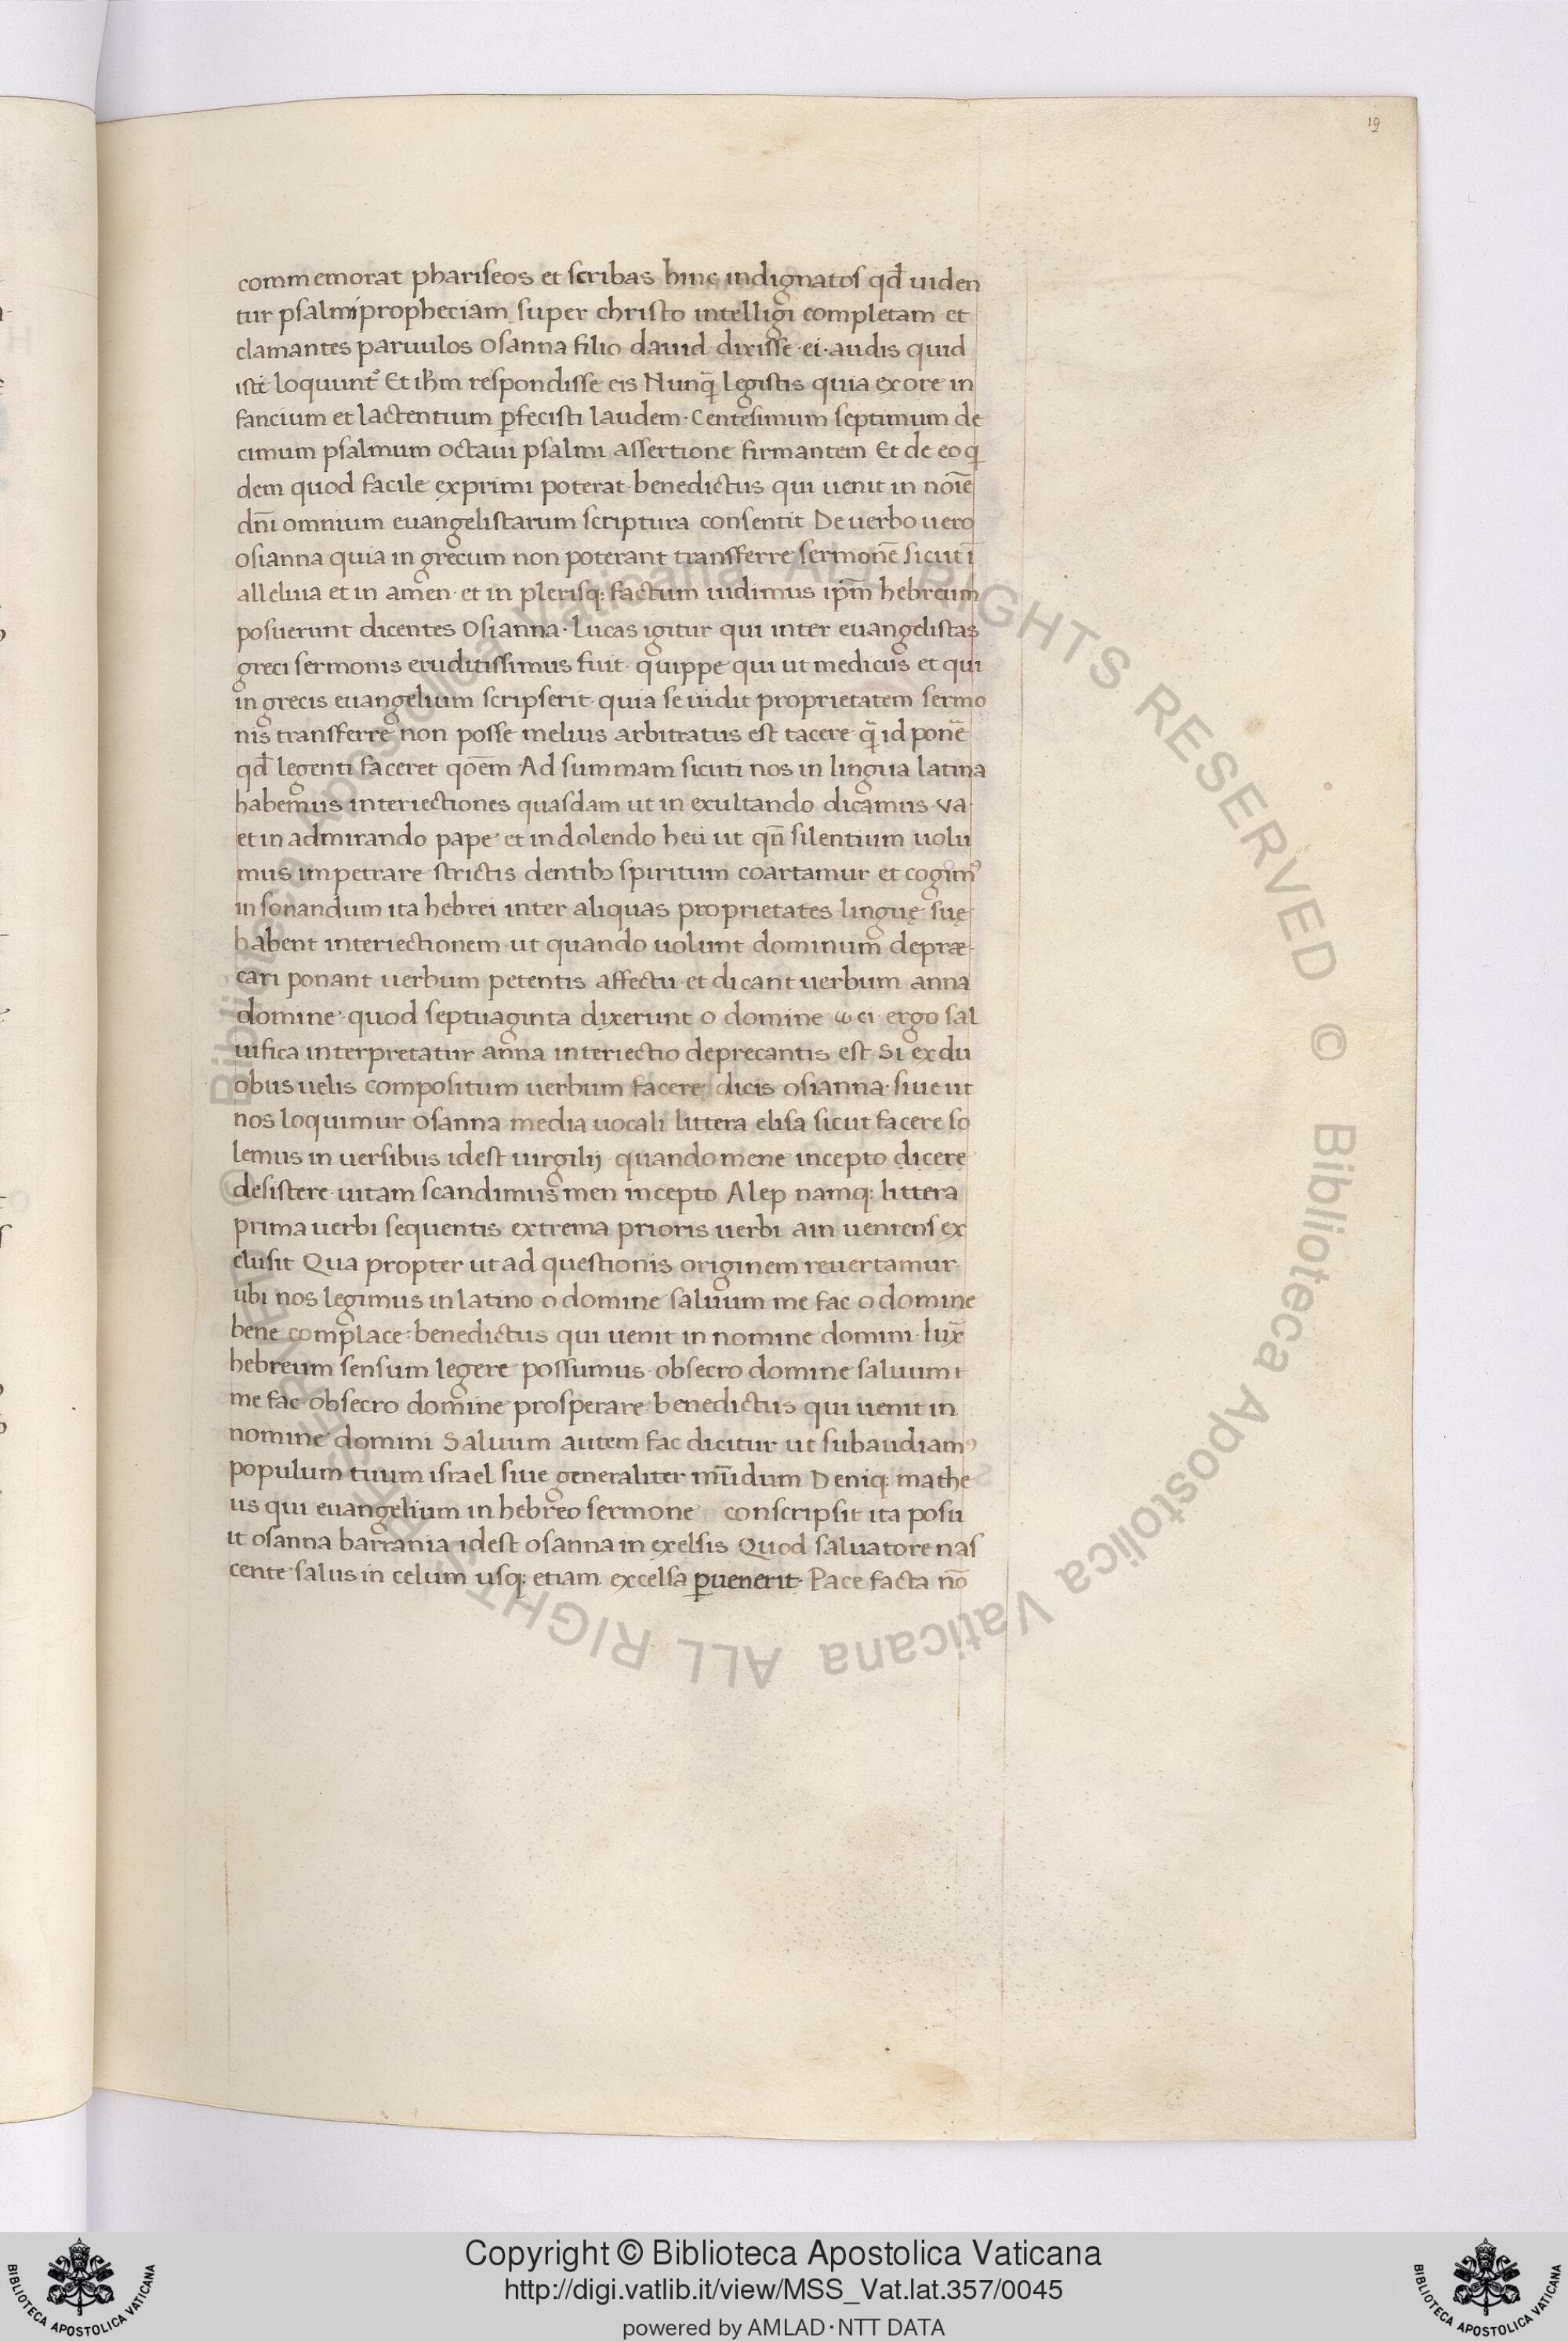 19
commemorat phariseos et scribas hinc indignatos qđ uiden
tur psalmi propheciam super christo intelligi completam et
clamantes paruulos Osanna filio dauid dixisse ei· audis quid
isti loquunt᷑ Et ihm̄ respondisse eis Nunq̄ legistis quia ex ore in
fancium et lactentium ꝑfecisti laudem· Centesimum septimum de
cimum psalmum octaui psalmi assertione firmantem Et de eo q
dem quod facile exprimi poterat benedictus qui uenit in noīe
dn̄i omnium euangelistarum scriptura consentit De uerbo uero
osianna quia in grecum non poterant transferre sermonē sicut ī
alleluia et in amen· et in plerisq; factum uidimus ip̄m hebreum
posuerunt dicentes Osianna· Lucas igitur qui inter euangelistas
greci sermonis eruditissimus fuit· quippe qui ut medicus et qui
in grecis euangelium scripserit· quia se uidit proprietatem sermo
nis transferre non posse melius arbitratus est tacere q̄ id ponē
qđ legenti faceret qōem Ad summam sicuti nos in lingua latina
habemus interiectiones quasdam ut in exultando dicamus va·
et in admirando pape et in dolendo heu ut qn̄ silentium uolu
mus impetrare strictis dentibꝫ spiritum coartamur et cogimꝰ
in sonandum ita hebrei inter aliquas proprietates linguę suę
habent interiectionem ut quando uolunt dominum depræ-
cari ponant uerbum petentis affectu et dicant uerbum anna
domine· quod septuaginta dixerunt o domine ω ei ergo sal
uifica interpretatur anna interiectio deprecantis est Si ex du
obus uelis compositum uerbum facere dicis osianna· siue ut
nos loquimur osanna media uocali littera elisa sicut facere so
lemus in uersibus idest uirgilij· quando mene incepto dicere
desistere uitam scandimus men incepto Alep namq; littera
prima uerbi sequentis extrema prioris uerbi ain ueniens ex
clusit Qua propter ut ad questionis originem reuertamur
ubi nos legimus in latino o domine saluum me fac o domine
bene complace: benedictus qui uenit in nomine domini· Iux̄
hebreum sensum legere possumus· obsecro domine saluum t
me fac obsecro domine prosperare benedictus qui uenit in
nomine domini Saluum autem fac dicitur ut subaudiamꝰ
populum tuum israel siue generaliter mūdum Deniq; mathe
us qui euangelium in hebreo sermone conscripsit ita posu
it osanna barrania idest osanna in exelsis Quod saluatore nas
cente salus in celum usq; etiam excelsa ꝑuenerit· Pace facta nō
© Biblioteca Apostolica Vaticana ALL RIGHTS RESERVED © Biblioteca Apostolica Vaticana ALL RIGHTS RESERVED
Copyright © Biblioteca Apostolica Vaticana
http://digi.vatlib.it/view/MSS_Vat.lat.357/0045
powered by AMLAD·NTT DATA
BIBLIOTECA APOSTOLICA VATICANA
BIBLIOTECA APOSTOLICA VATICANA